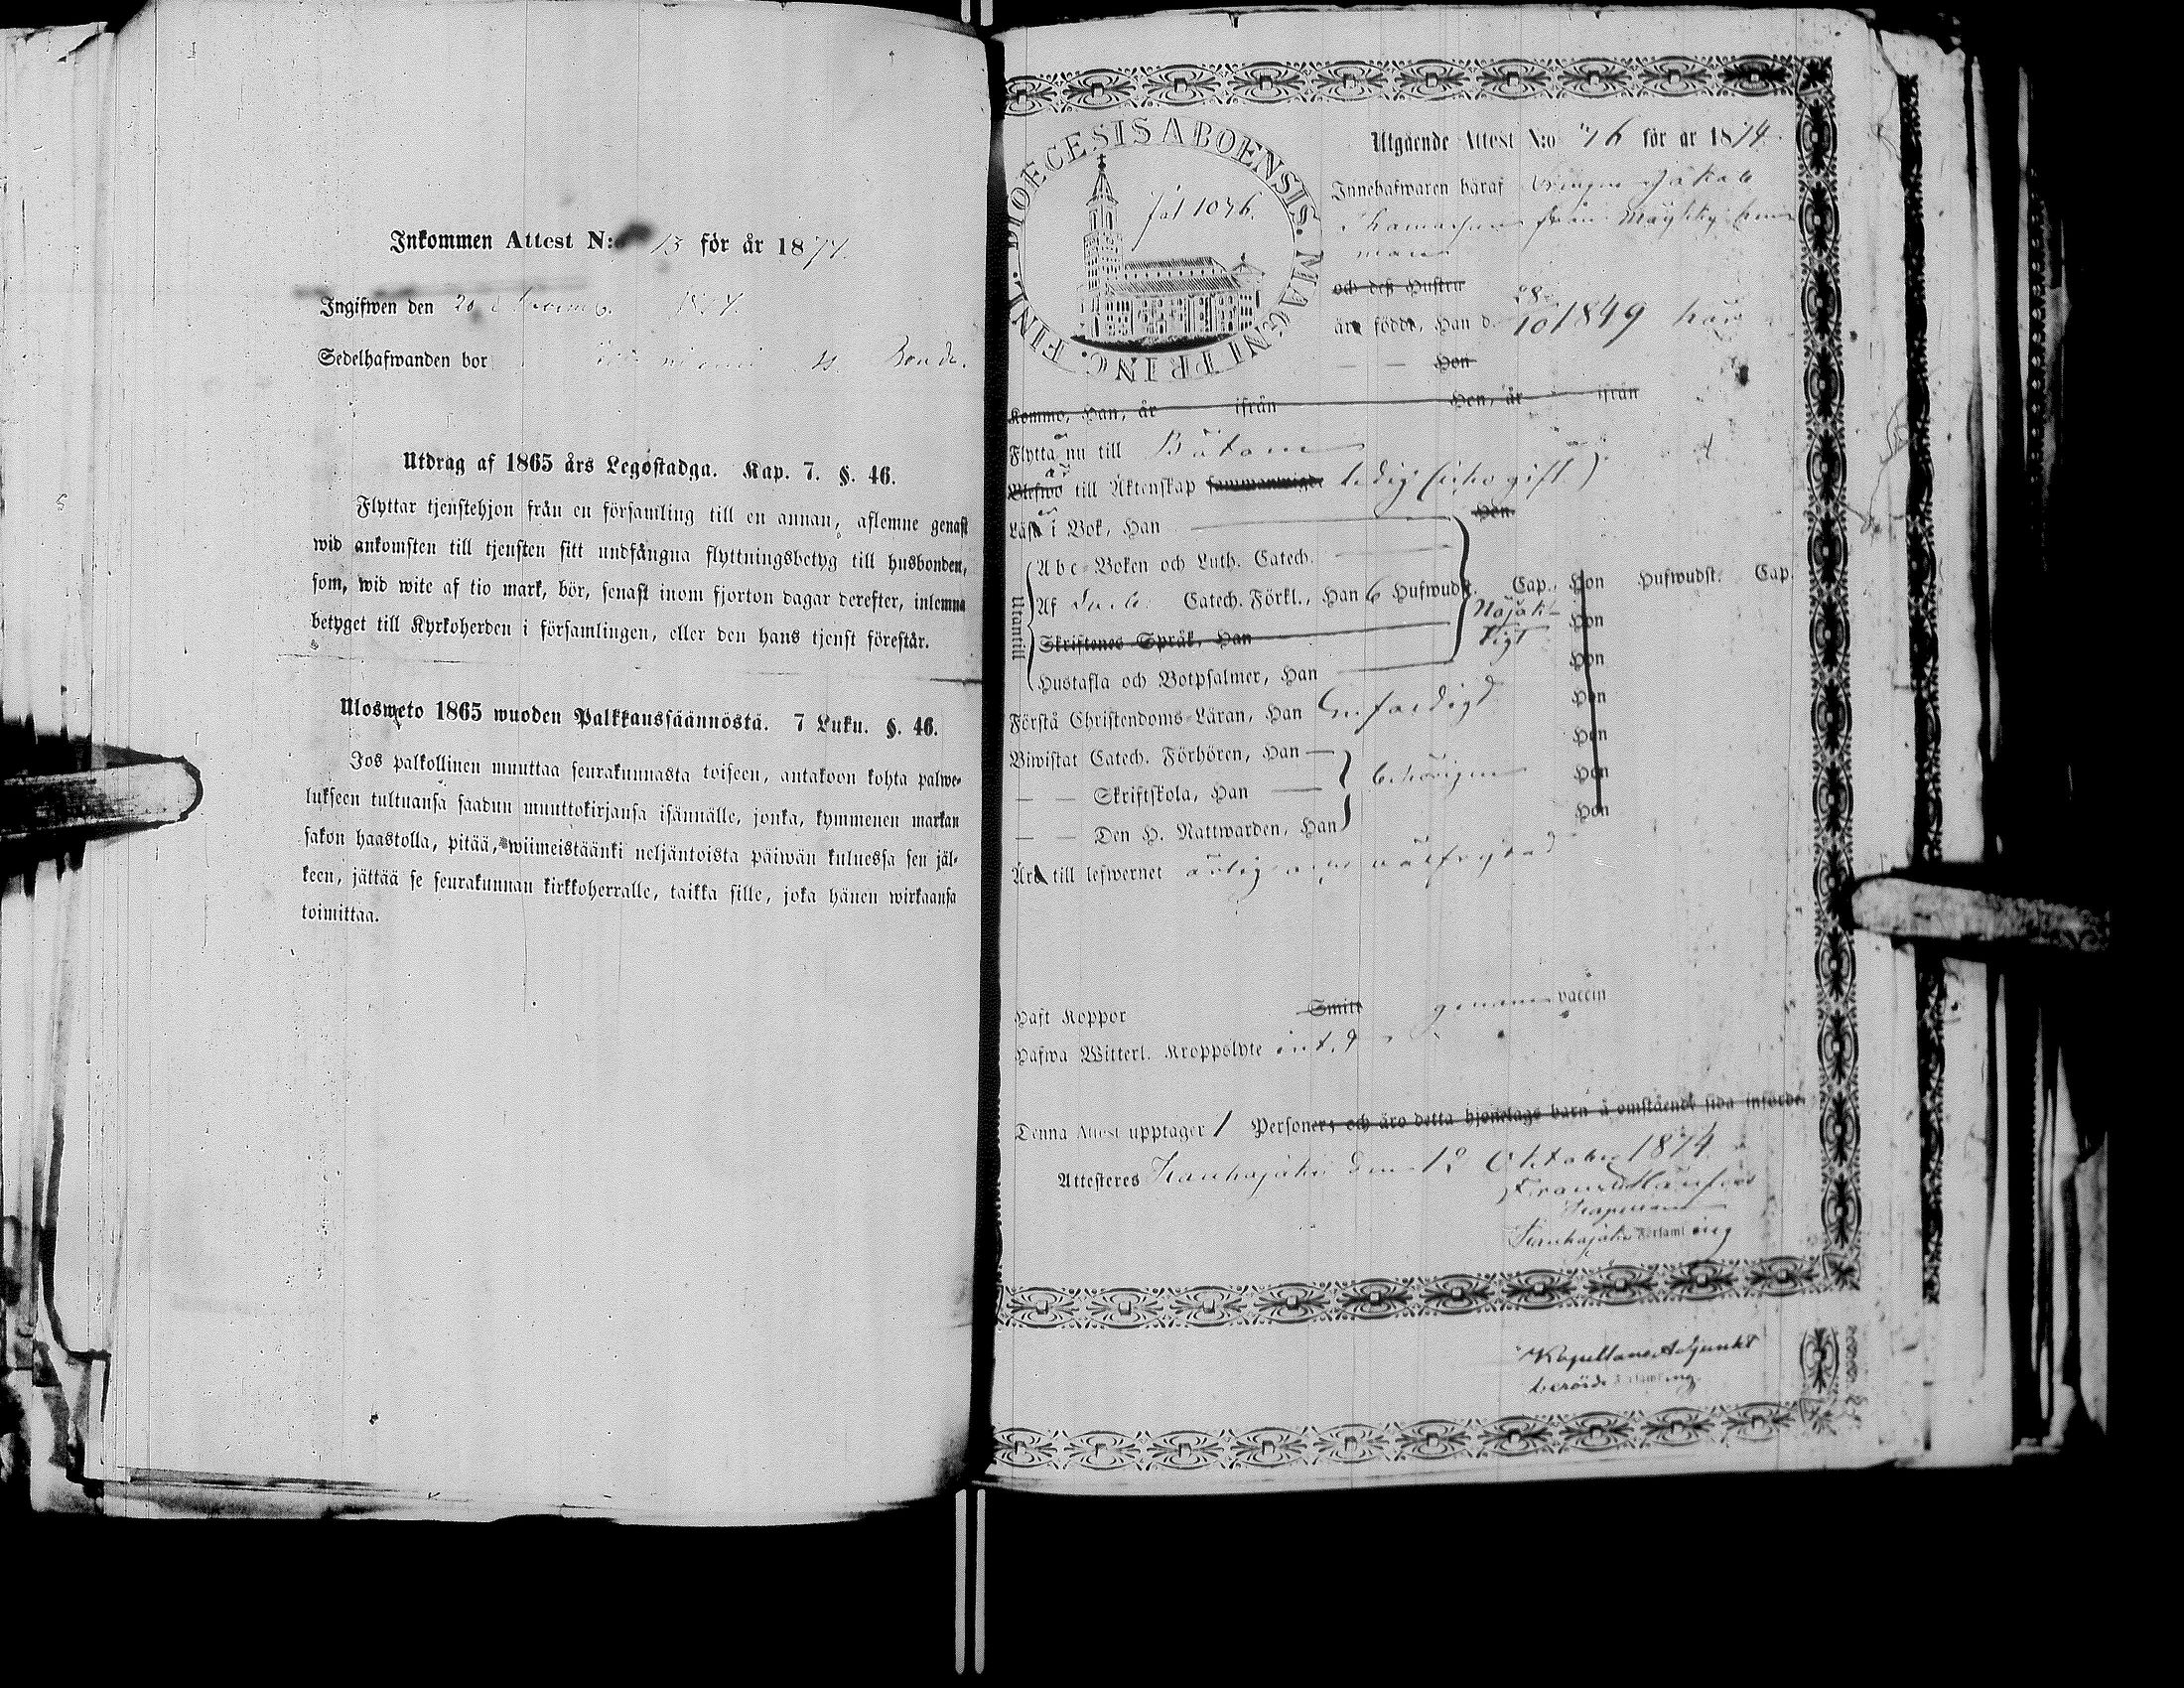 Inkommen Attest N:o 13 för år 1874.
Ingifwen den 20 1874.
Sedelhafwanden bor Bonde.
Utdrag af 1865 års Legostadga. Kap. 7. §. 46.
Flyttar tjenstehjon från en församling till en annan, aflemne genast
wid ankomsten till tjensten sitt undfångna flyttningsbetyg till husbonden,
som, wid wite af tio mark, bör, senast inom fjorton dagar derefter, inlemna
betyget till Kyrkoherden i församlingen, eller den hans tjenst förestår.
Ulosweto 1865 wuoden Palkkaussäännöstä. 7 Luku. §. 46.
Jos palkollinen muuttaa seurakunnasta toiseen, antakoon kohta palwe-
lukseen tultuansa saadun muuttokirjansa isännälle, jonka, kymmenen markan
sakon haastolla, pitää, wiimeistäänki neljäntoista päiwän kuluessa sen jäl-
keen, jättää se seurakunnan kirkkoherralle, taikka sille, joka hänen wirkaansa
toimittaa.
DIOECESIS ABOENSIS. MAGNI PRINC. FINL.
Utgående Attest N:o 76 för år 1874.
Innehafwaren häraf Drängen Jakob
Thomasson från Mäykky hem
man
och deß Hustru
äro födde, Han d. 28/10 1849 här
— — Hon
Kommo, Han, år ifrån Hon, år ifrån
Flytta nu till Bötom
Blefwo till Äktenskap sammanwigde ledig (icke gift)
Läsa i Bok, Han Hon
Utantill
Abc-Boken och Luth. Catech.
Af Catech. Förkl., Han 6 Hufwudst. Cap. Hon Hufwudst. Cap.
Nöjak-
tigt
Skriftenes Språk, Han Hon
Hustafla och Botpsalmer, Han Hon
Förstå Christendoms-Läran, Han Hon
Biwistat Catech. Förhören, Han — Hon
— — Skriftskola, Han — behörigen Hon
— — Den H. Nattwarden, Han Hon
Äro till lefwernet ärlig och välfrejdad
Haft Koppor Smitt genom vaccin
Hafwa Witterl. Kroppslyte intet
Denna Attest upptager 1 Personer, och äro detta hjonelags barn å omstående sida införde.
Attesteras Kauhajoki den 12 Oktober 1874.
Kapellan
Kauhajoki Församling
Kapellans Adjunkt
berörde Församling